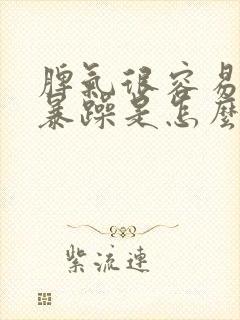 脾氣很容易
暴躁是怎麼
紫流連